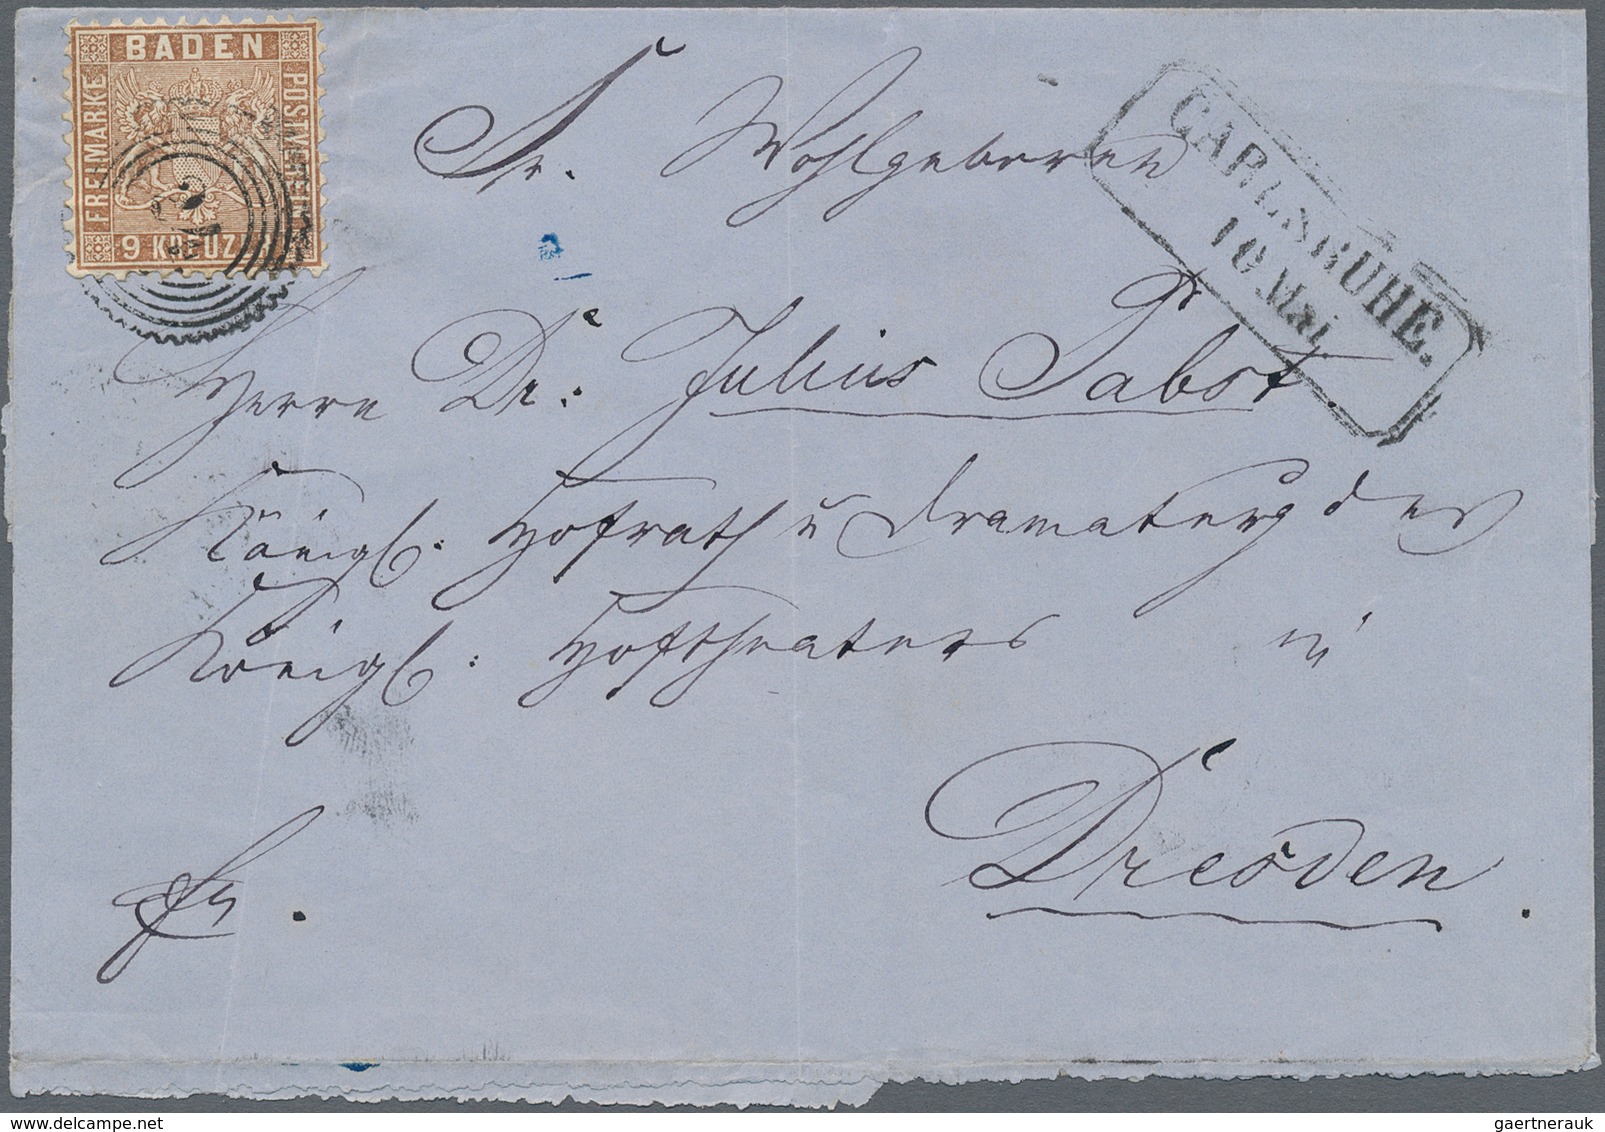 BADEN
FREIMARKE
POSTVEREIN
9 KREUZ
CARLSRUHE.
10 Mai
Sr. Wohlgeboren
Herrn Dr. Julius Pabst.
Königl: Hofrath u Dramaturg des
Königl: Hoftheaters in
Dresden.
fr.
gaertnerauk